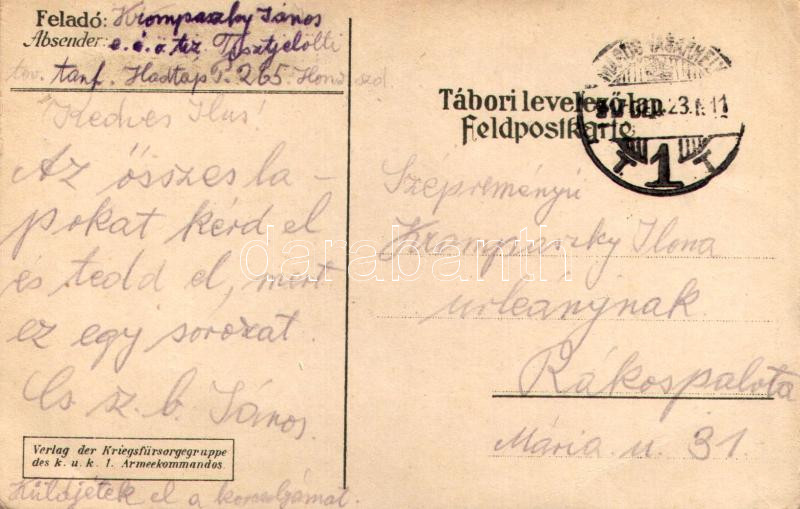 Feladó: Krompaszky János
Absender: e. é. ö. tüz. Tisztjelölti
tov. tanf. Hadtáp P. 265. Honv.
Kedves Ilus!
Az összes la-
pokat kérd el
és tedd el, mert
ez egy sorozat.
Cs. sz. b. János.
Verlag der Kriegsfürsorgegruppe
des k. u. k. 1. Armeekommandos.
Küldjétek el a
Tábori levelező lap
Feldpostkarte
MAROS VÁSÁRHELY
23
T. 1 T.
Szépreményű
Krompaszky Ilona
urleánynak
Rákospalota
Mária u. 31.
darabanth